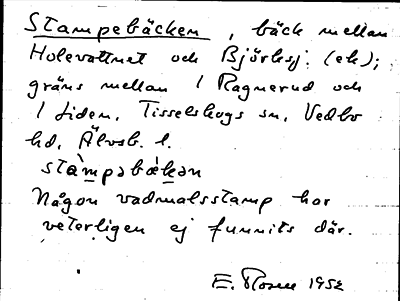 Stampebäcken, bäck mellan
Holevattnet och Björksj. (ek);
gräns mellan 1 Ragnerud och
1 Liden, Tisselskogs sn, Vedbo
hd, Älvsb. l.
stàmpəbæ̀kən
Någon vadmalsstamp har
veterligen ej funnits där.
E. Rosen 1952